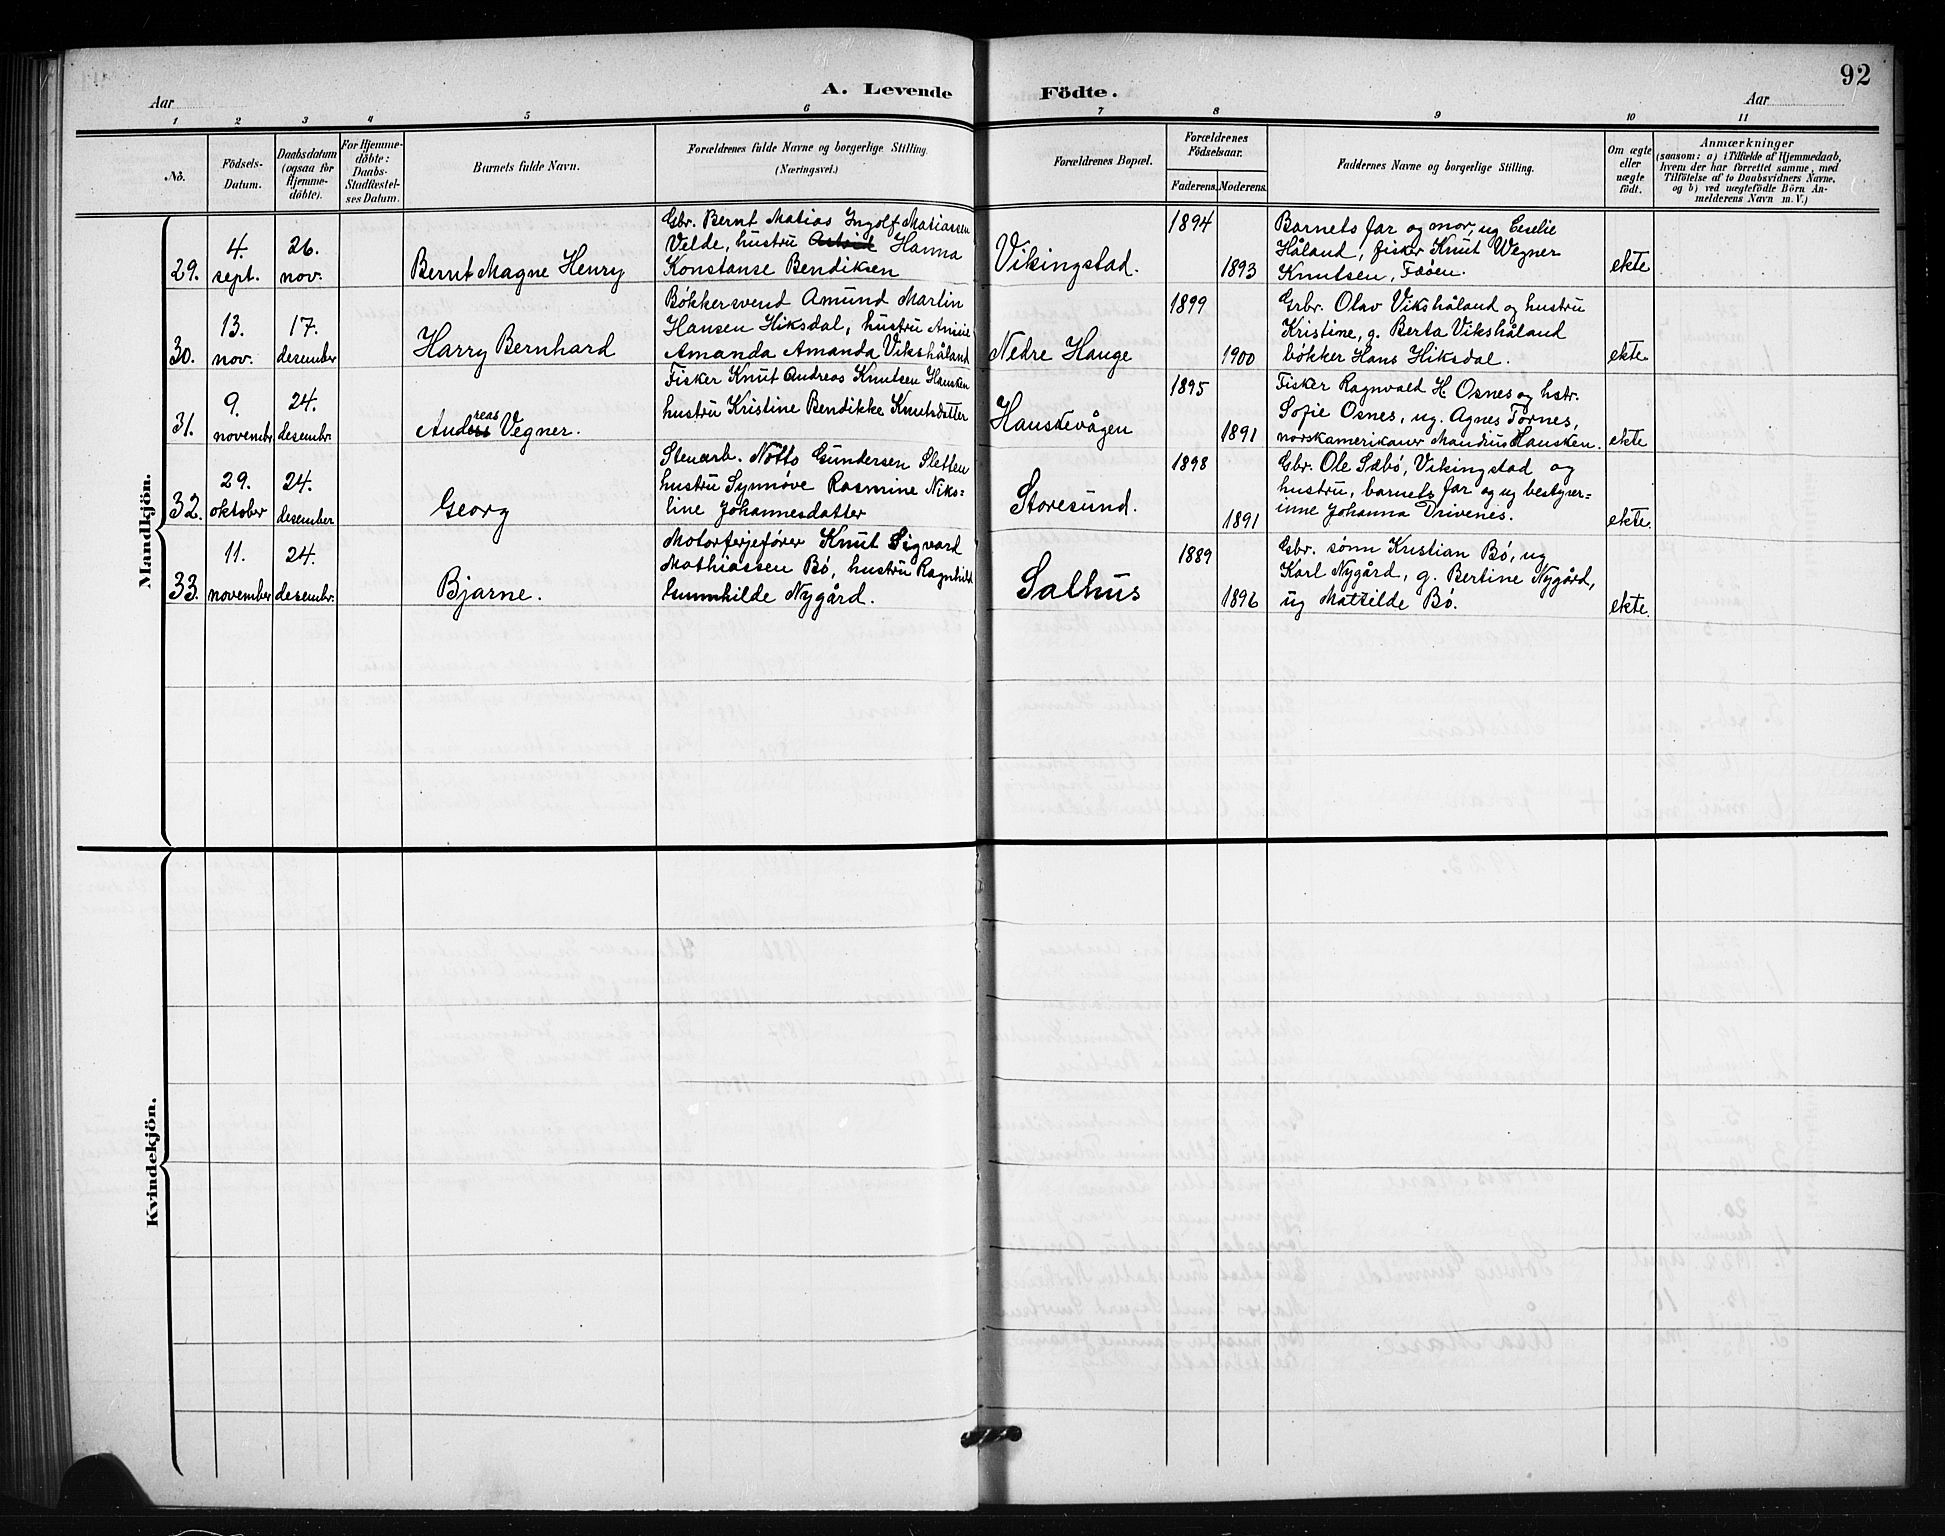 92
A. Levende Födte.
Aar
Aar
1 2 3 4 5 6 7 8 9 10 11
No.
Födsels-
Datum.
Daabsdatum
(ogsaa for
Hjemme-
döbte).
For Hjemme-
döbte:
Daabs-
Stadfæstel-
ses Datum.
Barnets fulde Navn.
Forældrenes fulde Navne og borgerlige Stilling.
(Næringsvei.)
Forældrenes Bopæl.
Forældrenes
Födselsaar.
Faderens.
Moderens.
Faddernes Navne og borgerlige Stilling.
Om ægte
eller
uægte
födt.
Anmærkninger
(saasom: a) i Tilfælde af Hjemmedaab,
hvem der har forrettet samme, med
Tilföielse af to Daabsvidners Navne,
og b) ved uægtefödte Börn An-
melderens Navn m. V.)
Mandkjön.
29.
4.
sept.
26.
nov.
Bernt Magne Henry
Gbr. Bernt Matias Ingolf Matiassen
Velde, hustru Astrid Hanna
Konstanse Bendiksen
Vikingstad.
1894
1893
Barnets far og mor, ug Ceselie
Håland, fisker Knut Wegner
Knutsen, Fæøen.
ekte
30.
13.
nov.
17.
desember
Harry Bernhard
Bøkkersvend Amund Martin
Hansen Hiksdal, hustru Annie
Amanda Amanda Vikshåland
Nedre Hauge
1899
1900
Grbr. Olav Vikshåland og hustru
Kristine, g. Berta Vikshåland
bøkker Hans Hiksdal.
ekte
31.
9.
novembr
24.
desembr.
reas
Anders Vegner.
Fisker Knut Andreas Knutsen Hausken
hustru Kristine Bendikke Knutsdatter
Haustevågen
1895
1891
Fisker Ragnvald H. Osnes og hstr.
Sofie Osnes, ug. Agnes Tornes,
norskamerikaner Mandius Hausken.
ekte
32.
29.
oktober
24.
desember
Georg
Stenarb. Notto Gundersen Sletten
hustru Synnøve Rasmine Niko=
line Johannesdatter
Storesund.
1898
1891
Gbr. Ole Sæbø, Vikingstad og
hustru, barnets far og ug bestyrer=
inne Johanna Drivenes.
ekte.
33.
11.
november
24.
desembr.
Bjarne.
Motorferjefører Knut Sigvard
Mathiassen Bø, hustru Ragnhild
Gunnhilde Nygård.
Salhus
1889
1896
Gbr. sønn Kristian Bø, ug
Karl Nygård, g. Bertine Nygård,
ug Mathilde Bø.
ekte
Kvindekjön.